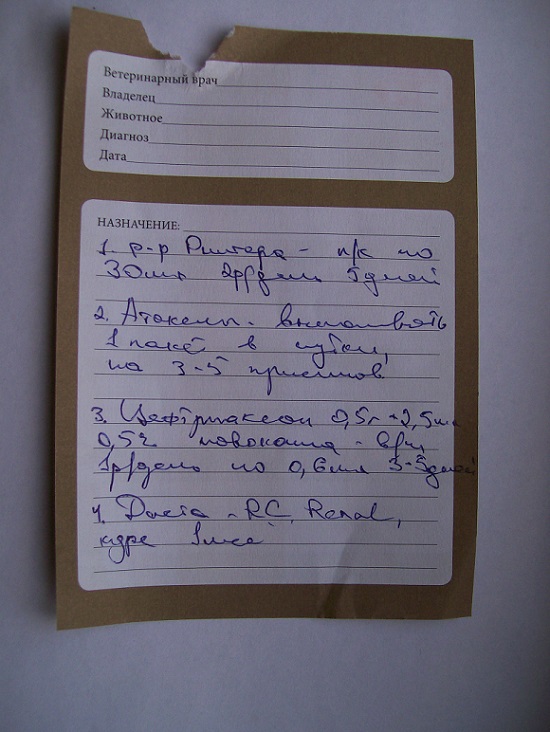 Ветеринарный врач
Владелец
Животное
Диагноз
Дата
НАЗНАЧЕНИЕ:
1. р-р Рингера - п/к по
30мл 2р/день 5дней
2. Атоксил - выпаивать
1 пакет в сутки,
на 3-5 приемов
3. Цефтриаксон 0,5г + 2,5мл
0,5% новокаина - в/м,
1р/день по 0,6мл 3-5дней
4. Диета - RC, Renal,
1мес